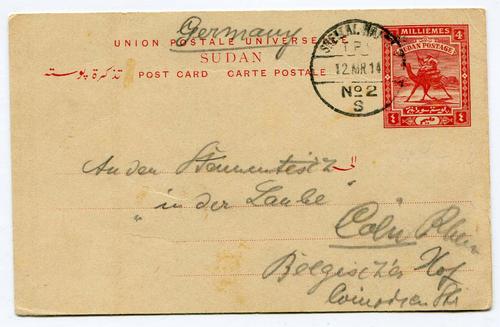 Germany
UNION POSTALE UNIVERSELLE
SUDAN
تذكرة بوسته
POST CARD CARTE POSTALE
SHELLAL HALFA
T.P.O
12 MR 14
No 2
S
MILLIEMES 4
SUDAN POSTAGE
An den Stammtisch
الى
„ in der Laube "
Cöln Rhein
Belgischer Hof